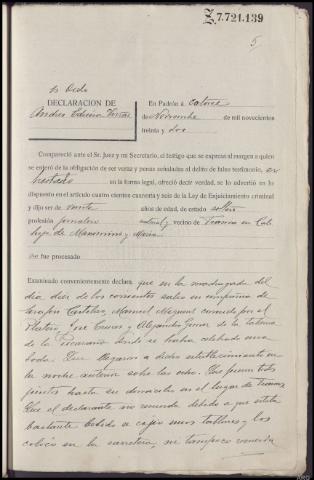 Z.7.721.139
5
DECLARACION DE
En Padrón á catorce
de Noviembre de mil novecientos
treinta y dos
Compareció ante el Sr. Juez y mi Secretario, el testigo que se expresa al margen a quien
se enteró de la obligación de ser veraz y penas señaladas al delito de falso testimonio,
en la forma legal, ofreció decir verdad, se le advertió en lo
dispuesto en el artículo cuatro cientos cuarenta y seis de la Ley de Enjuiciamiento criminal
y dijo ser de veinte años de edad, de estado soltero
profesión jornalero natural y vecino de
hijo de Maximino y María
no fue procesado
Examinado convenientemente declara, que en la madrugada del
día diez de los corrientes salió en compañía de
Manuel Miguez conocido por el
José y Alejandro de la taberna
de donde se había celebrado una
boda. Que llegaron a dicho establecimiento en
la noche anterior sobre las ocho. Que fueron todos
juntos hasta su domicilio en el lugar de
Que el declarante no recuerda debido a que estaba
bastante bebido a cojido unos y los
colocó en la carretera, ni tampoco recuerda